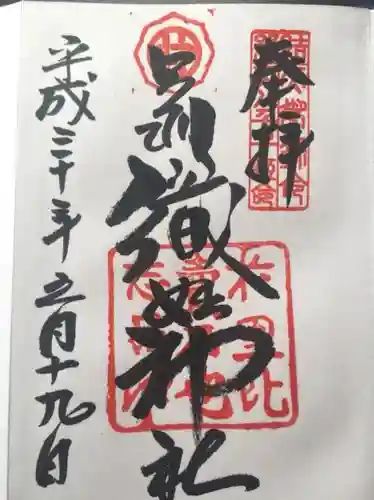 奉拝
足利織姫神社
平成三十年五月十九日